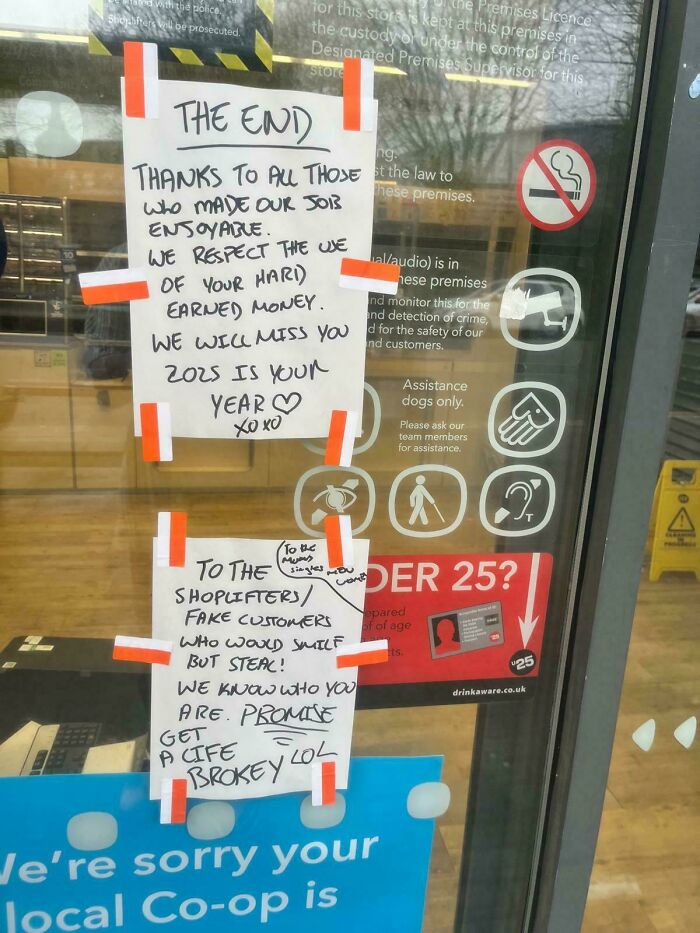 with the police.
Shoplifters will be prosecuted.
of the Premises Licence
for this store is kept at this premises in
the custody or under the control of the
Designated Premises Supervisor for this
store.
THE END
THANKS TO ALL THOSE
WHO MADE OUR JOB
ENJOYABLE.
WE RESPECT THE USE
OF YOUR HARD
EARNED MONEY.
WE WILL MISS YOU
2025 IS YOUR
YEAR ♡
XOXO
ng.
st the law to
hese premises.
al/audio) is in
hese premises
nd monitor this for the
nd detection of crime,
d for the safety of our
nd customers.
Assistance
dogs only.
Please ask our
team members
for assistance.
T
TO THE
SHOPLIFTERS/
FAKE CUSTOMERS
WHO WOULD SMILE
BUT STEAL!
WE KNOW WHO YOU
ARE. PROMISE
GET
A LIFE
BROKEY LOL
To the
Mums
singles
MEN
WOMEN
DER 25?
epared
of of age
cts.
U25
drinkaware.co.uk
We're sorry your
local Co-op is